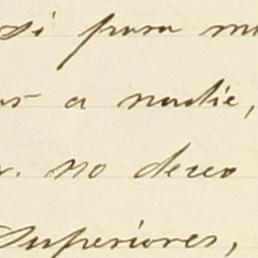 si para m
a nadie,
. no deseo
superiores,